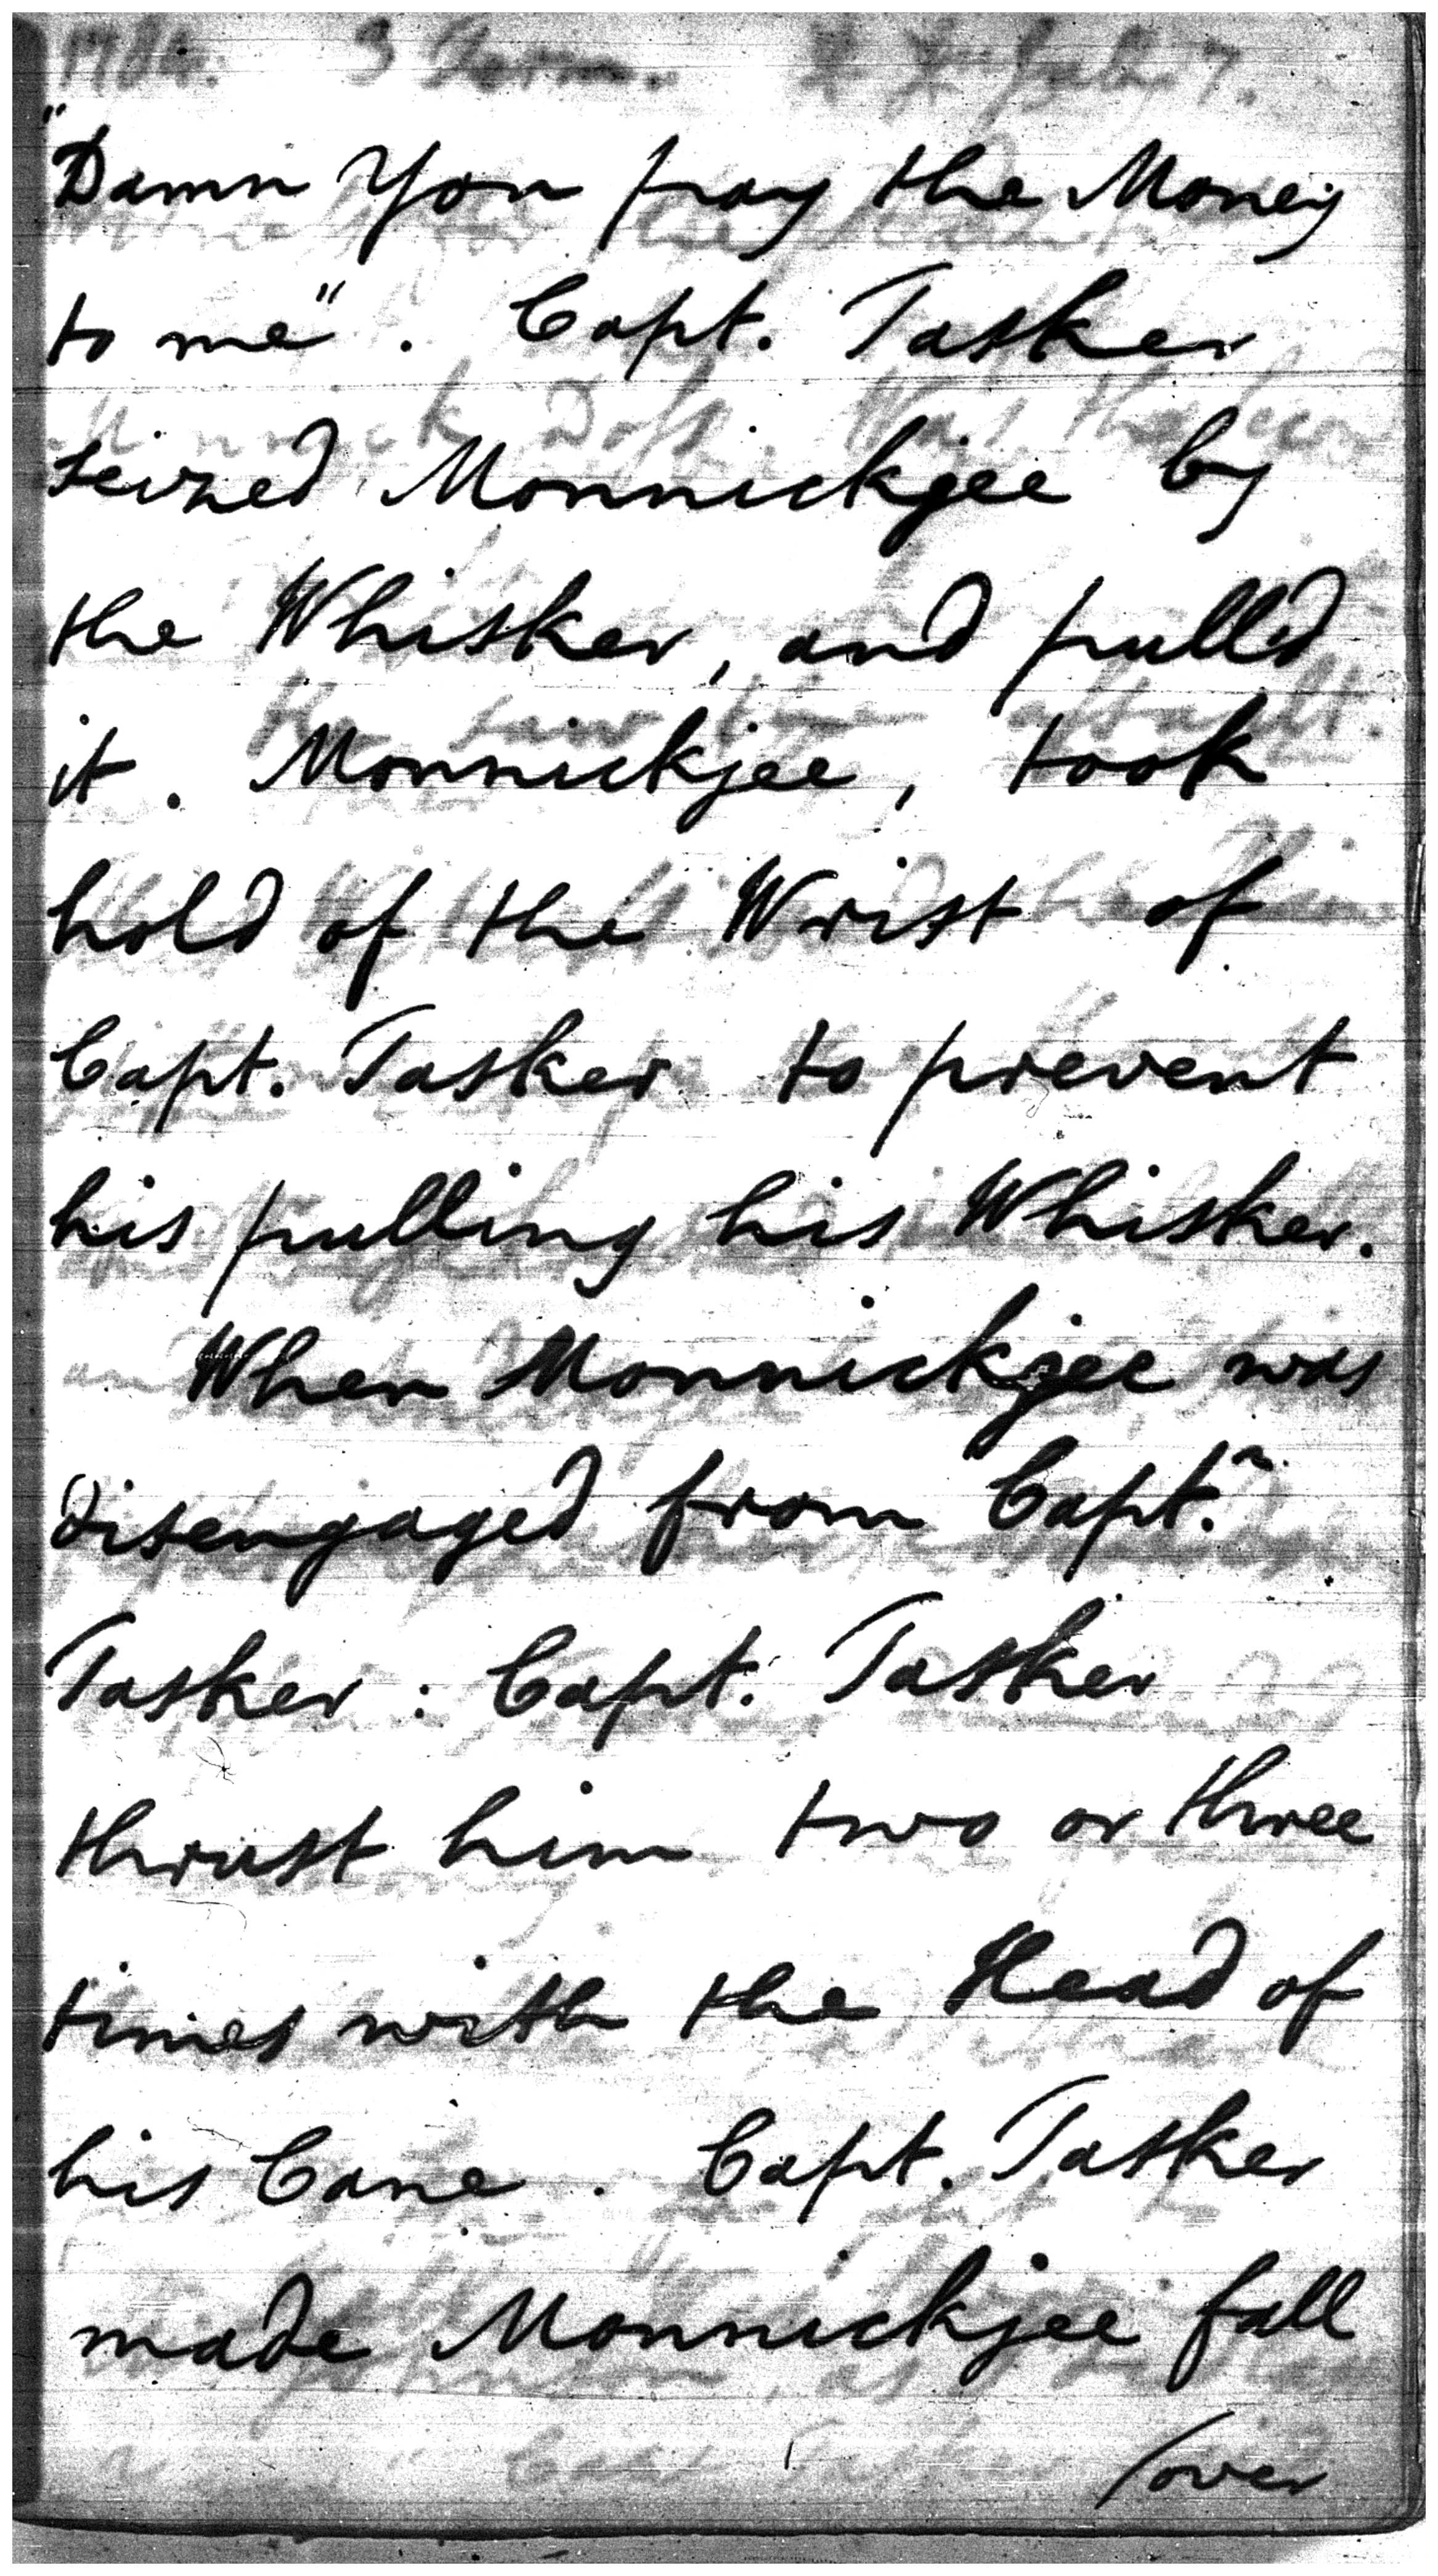 1786. 3 Term. July 7.
"Damn You pay the Money
to me". Capt. Tasker
seized Monnickjee by
the Whisker, and pulld
it. Monnickjee, took
hold of the Wrist of
Capt. Tasker to prevent
his pulling his Whisker.
When Monnickjee was
disengaged from Capt.n
Tasker: Capt. Tasker
thrust him two or three
times with the Head of
his Cane. Capt. Tasker
made Monnickjee fall
/over